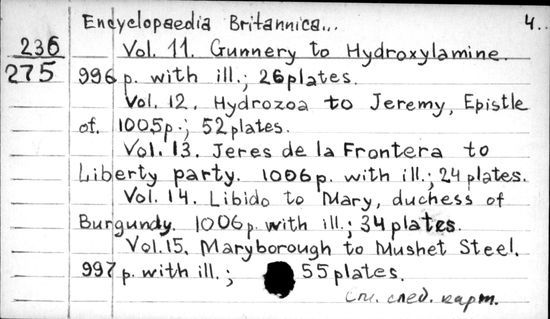 Encyclopaedia Britannica... 4..
236 Vol. 11. Gunnery to Hydroxylamine.
275 996 p. with ill.; 26 plates.
Vol. 12. Hydrozoa to Jeremy, Epistle
of. 1005 p.; 52 plates.
Vol. 13. Jeres de la Frontera to
Liberty party. 1006 p. with ill.; 24 plates.
Vol. 14. Libido to Mary, duchess of
Burgundy. 1006 p. with ill.; 34 plates.
Vol. 15. Maryborough to Mushet Steel.
997 p. with ill.; 55 plates.
См. след. карт.